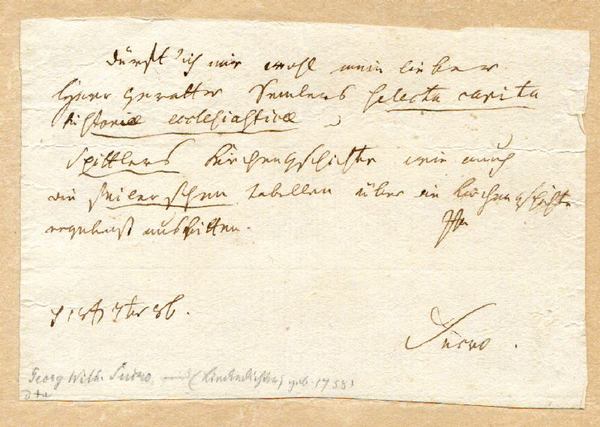 Dürft' ich mir wohl mein lieber
Herr Gevatter Semlers selecta capita
historiae ecclesiasticae,
Spittlers Kirchengeschichte wie auch
die Seilerschen Tabellen über die Kirchengeschichte
ergebenst ausbitten.
d 7br 86.
Sucro.
Georg Wilh. Sucro, (Liederdichter) geb. 1758